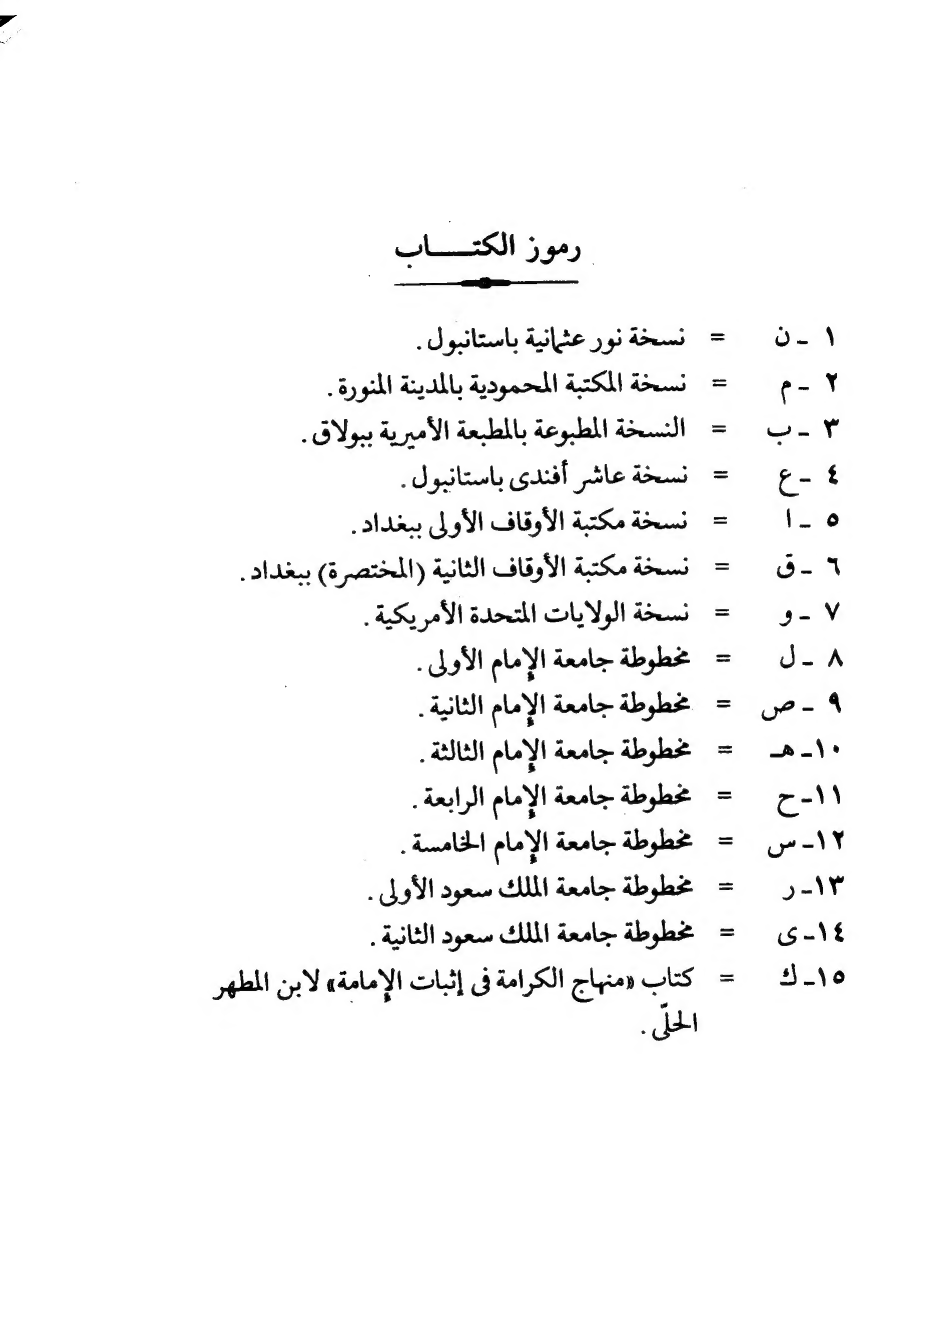 رموز الكتـــاب
١ - ن = نسخة نور عثمانية باستانبول .
٢ - م = نسخة المكتبة المحمودية بالمدينة المنورة .
٣ - ب = النسخة المطبوعة بالمطبعة الأميرية ببولاق .
٤ - ع = نسخة عاشر أفندى باستانبول .
٥ - ا = نسخة مكتبة الأوقاف الأولى ببغداد .
٦ - ق = نسخة مكتبة الأوقاف الثانية (المختصرة) ببغداد .
٧ - و = نسخة الولايات المتحدة الأمريكية .
٨ - ل = مخطوطة جامعة الإمام الأولى .
٩ - ص = مخطوطة جامعة الإمام الثانية .
١٠- هـ = مخطوطة جامعة الإمام الثالثة .
١١- ح = مخطوطة جامعة الإمام الرابعة .
١٢- س = مخطوطة جامعة الإمام الخامسة .
١٣- ر = مخطوطة جامعة الملك سعود الأولى .
١٤- ى = مخطوطة جامعة الملك سعود الثانية .
١٥- ك = كتاب «منهاج الكرامة فى إثبات الإمامة» لابن المطهر
الحلّى .